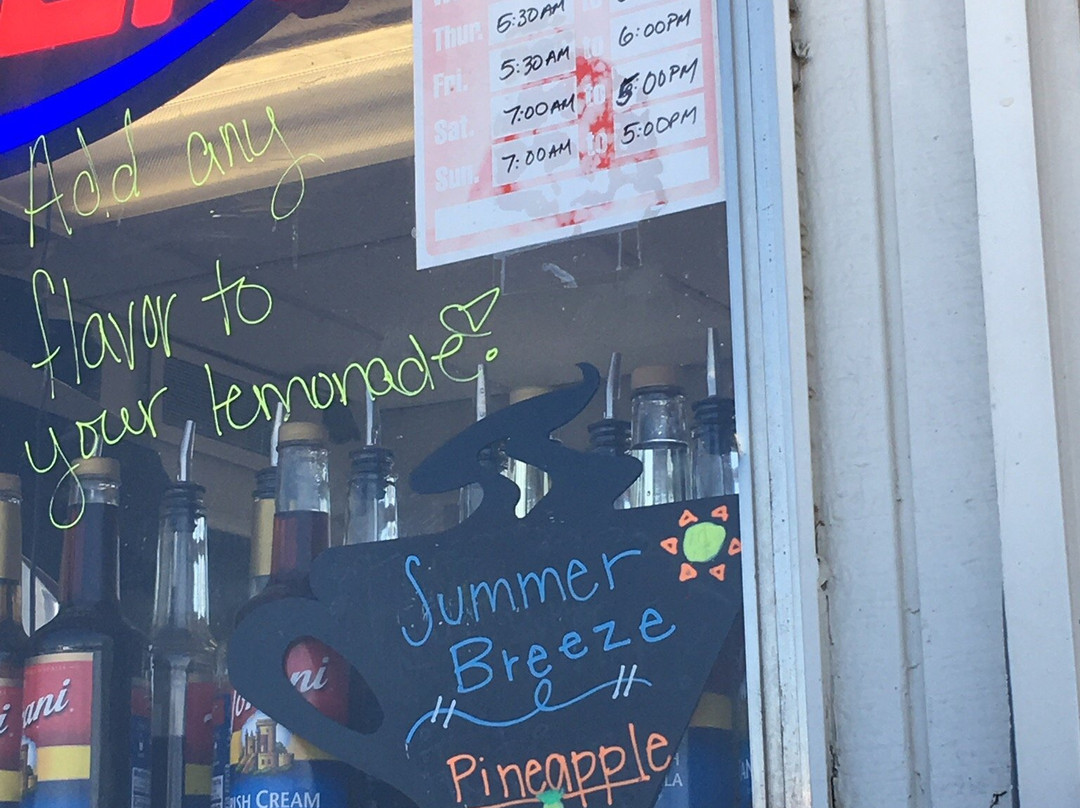 Thur. 5:30AM to
Fri. 5:30AM to 6:00PM
Sat. 7:00AM to 5:00PM
Sun. 7:00AM to 5:00PM
Add any
flavor to
your lemonade!
Summer
Breeze
Pineapple
ani
ni
ISH CREAM
LA